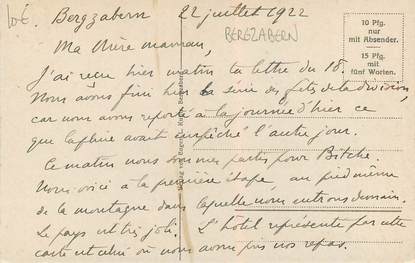 Bergzabern 22 juillet 1922
BERGZABERN
Ma chère maman,
J'ai reçu hier matin ta lettre du 18.
Nous avons fini hier la série des fêtes de la division,
car nous avons reporté à la journée d'hier ce
que la pluie avait empêché l'autre jour.
Ce matin nous sommes partis pour Bitche.
Nous voici à la première étape, au pied même
de la montagne dans laquelle nous entrons demain.
Le pays est très joli. L'hôtel représenté par cette
carte est celui où nous avons pris nos repas.
10 Pfg.
nur
mit Absender.
15 Pfg.
mit
fünf Worten.